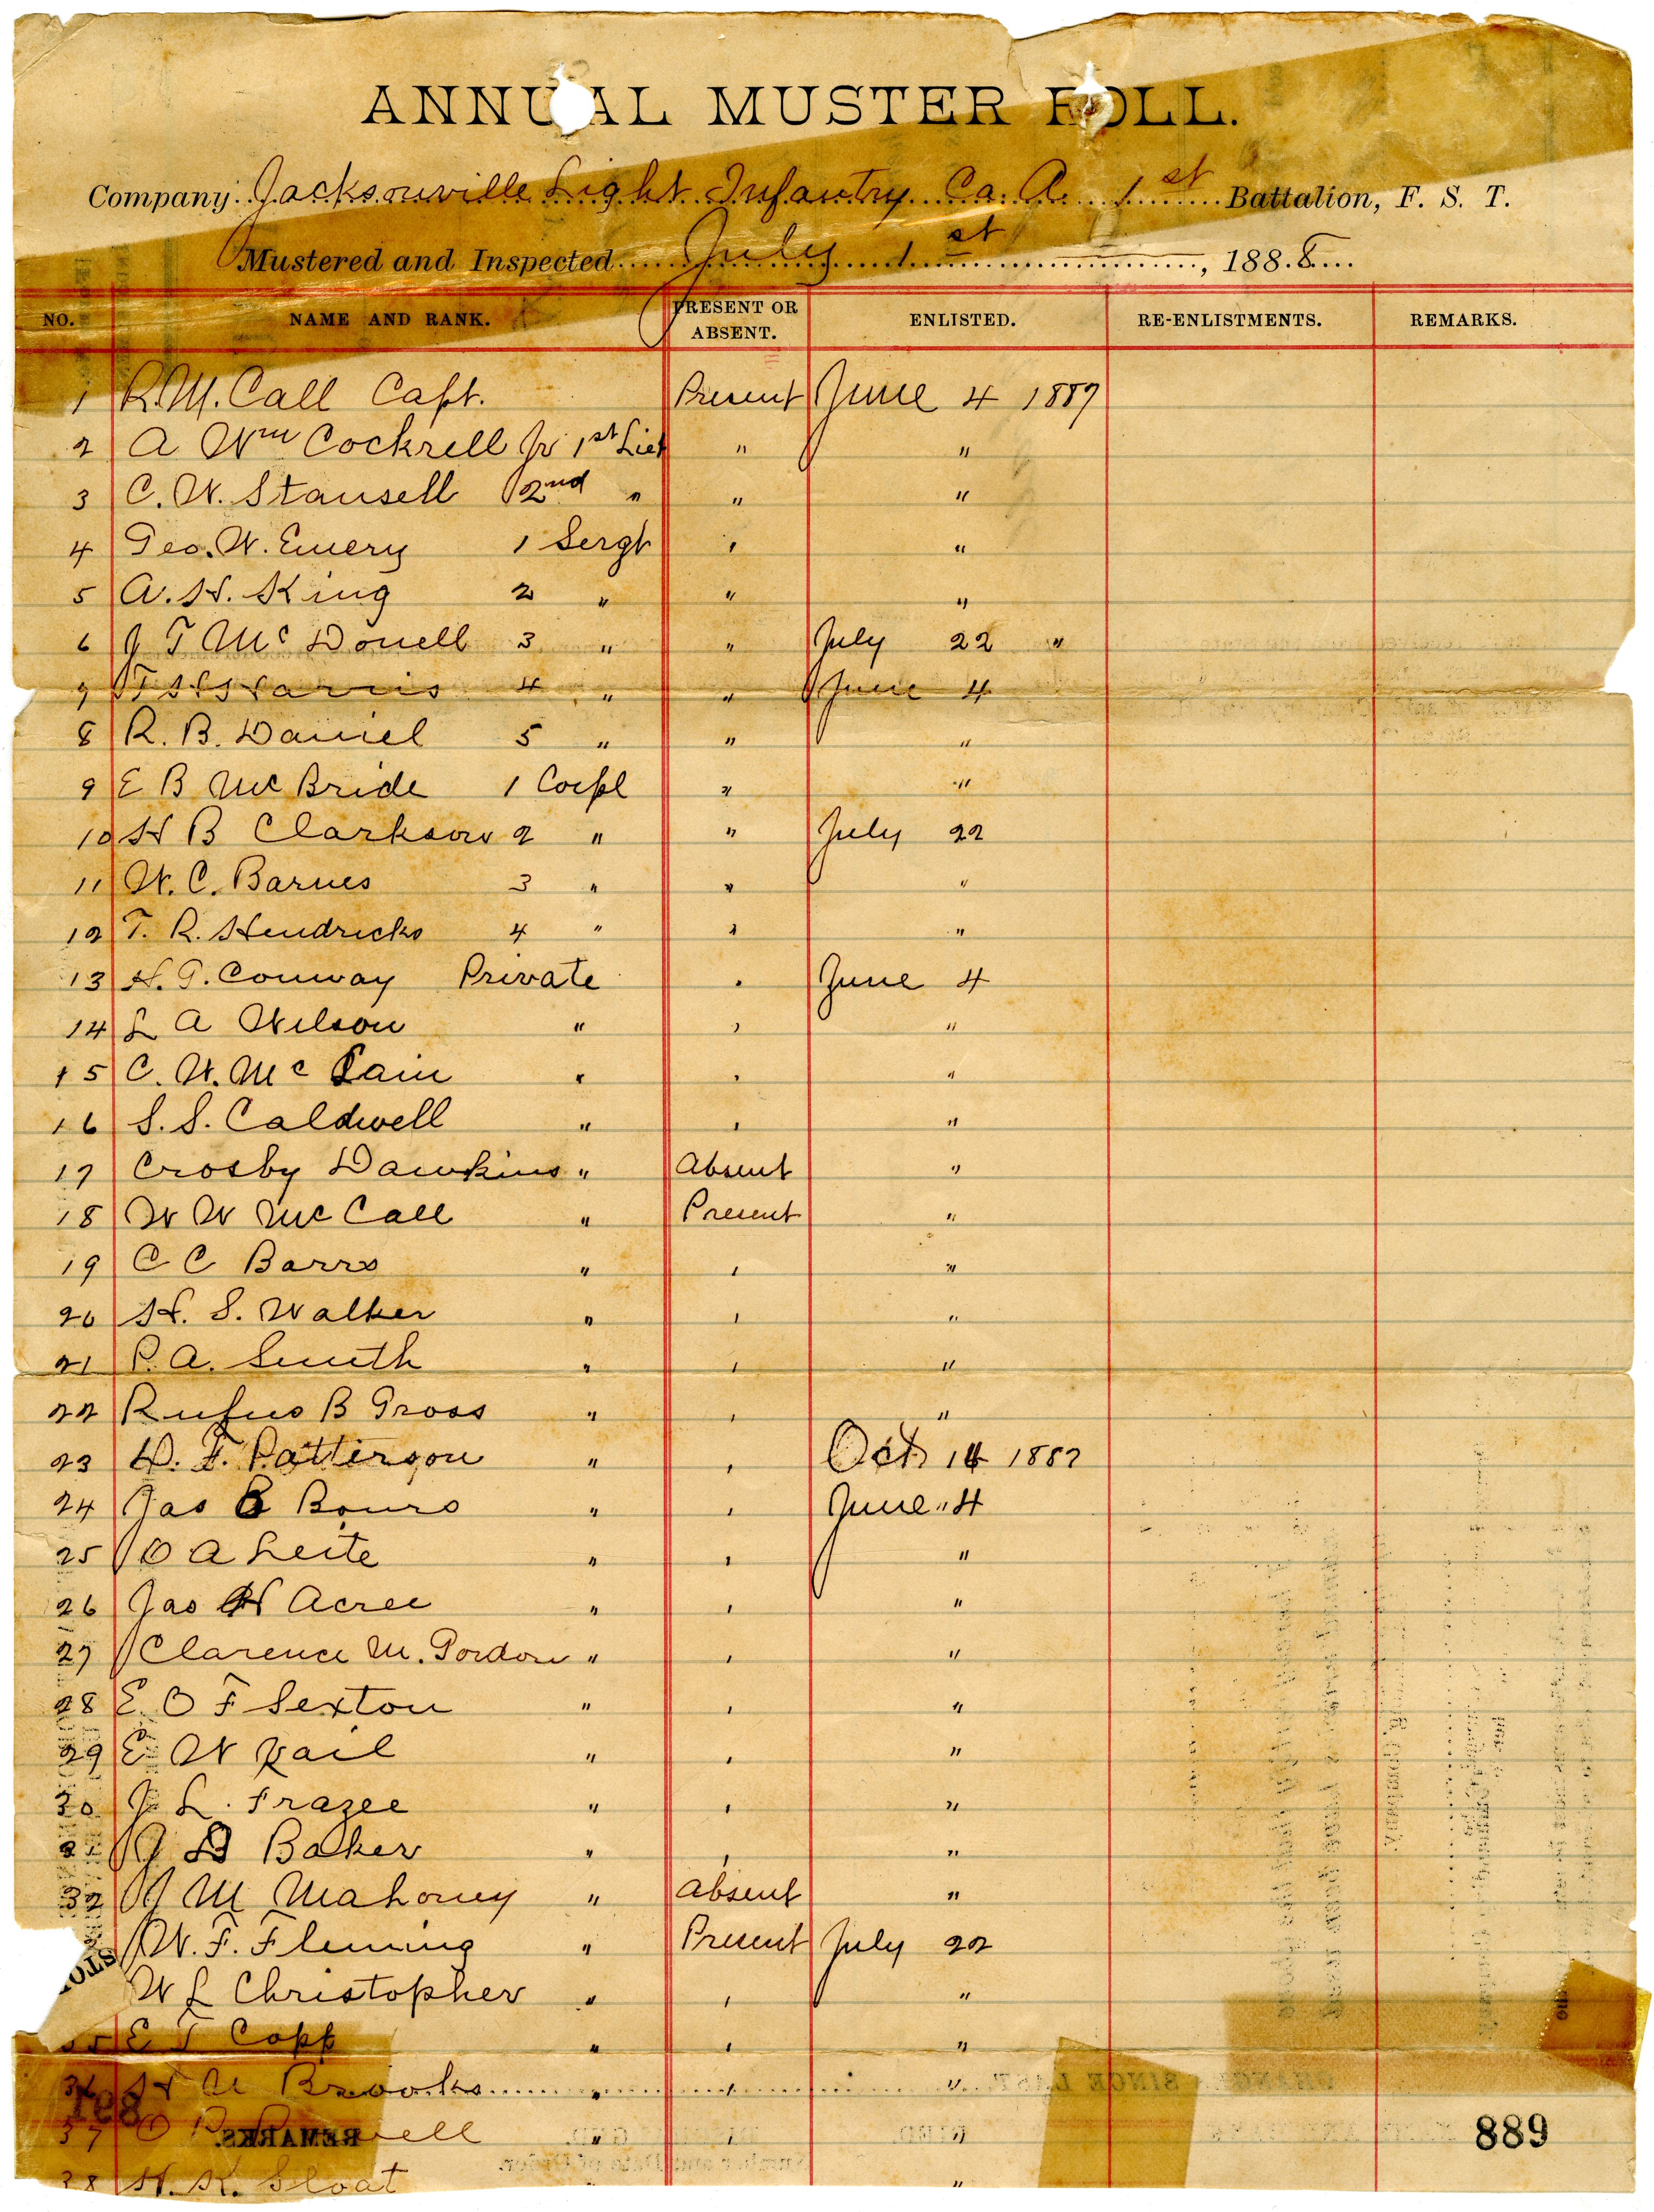 ANNUAL MUSTER ROLL.
Company Jacksonville Light Infantry Co. A. 1st Battalion, F. S. T.
Mustered and Inspected July 1st, 1888
NO. NAME AND RANK. PRESENT OR ABSENT. ENLISTED. RE-ENLISTMENTS. REMARKS.
1 R.M. Call Capt. Present June 4 1887
2 A Wm Cockrell Jr 1st Liet " "
3 C. W. Stansell 2nd " " "
4 Geo. W. Emery 1 Sergt " "
5 A. H. King 2 " " "
6 J T McDonell 3 " " July 22 "
7 T H Harris 4 " " June 4
8 R. B. Daniel 5 " " "
9 E B McBride 1 Corpl " "
10 H B Clarkson 2 " " July 22
11 W. C. Barnes 3 " " "
12 T. R. Hendricks 4 " " "
13 H. G. Conway Private " June 4
14 L A Wilson " " "
15 C. W. Mc Cain " " "
16 S. S. Caldwell " " "
17 Crosby Dawkins " Absent "
18 W W McCall " Present "
19 C C Barrs " " "
20 H. S. Walker " " "
21 P. A. Smith " " "
22 Rufus B Gross " " "
23 D. F. Patterson " " Oct 14 1887
24 Jas B Bours " " June " 4
25 O A Leite " " "
26 Jas H Acree " " "
27 Clarence M. Gordon " " "
28 E. O F Sexton " " "
29 E W Vail " " "
30 J L. Frazee " " "
31 J D Baker " " "
32 J M Mahoney " Absent "
W. F. Fleming " Present July 22
W L Christopher " " "
35 E T Copp " " "
36 H M Brooks " " "
37 O " " "
889
38 H. K. Sloat " "
REMARKS.